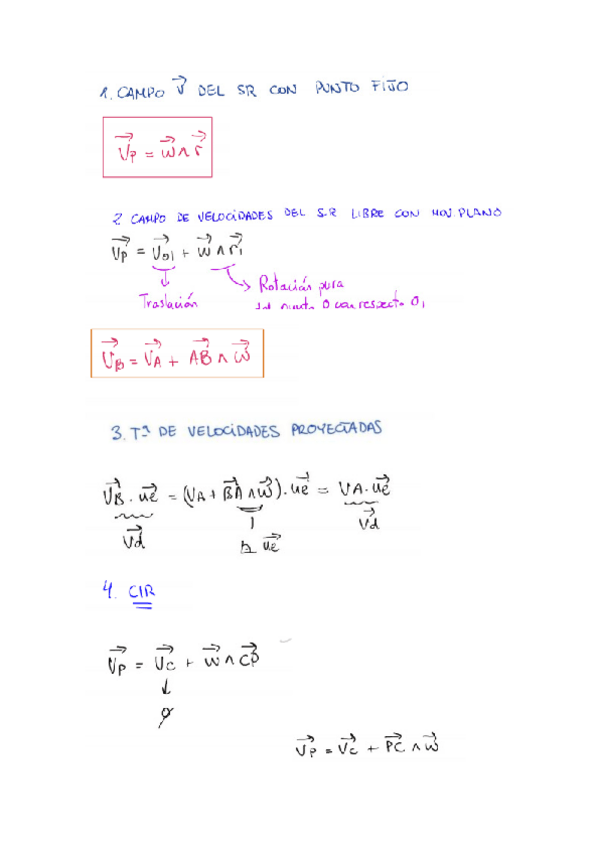 1. CAMPO V⃗ DEL SR CON PUNTO FIJO
V⃗p = w⃗ ∧ r⃗
2 CAMPO DE VELOCIDADES DEL S.R LIBRE CON MOV. PLANO
V⃗p = V⃗o1 + w⃗ ∧ r⃗1
Traslación
Rotación pura
punto O con respecto O1
V⃗B = V⃗A + AB⃗ ∧ w⃗
3. Tª DE VELOCIDADES PROYECTADAS
V⃗B · u⃗e = (VA + BA⃗ ∧ w⃗) · u⃗e = VA · u⃗e
V⃗d
u⃗e
V⃗d
4. CIR
V⃗p = V⃗c + w⃗ ∧ CP⃗
V⃗p = V⃗c + PC⃗ ∧ w⃗